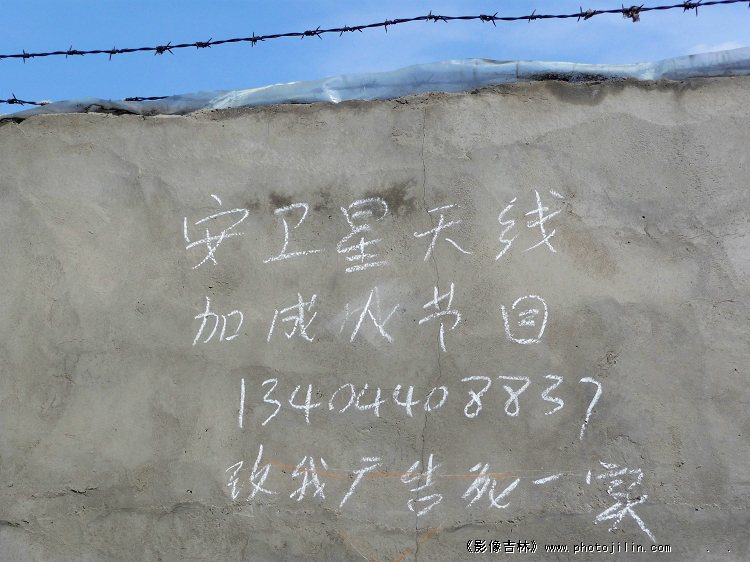 安卫星天线
加成人节目
13404408837
改我广告死一家
《影像吉林》www.photojilin.com